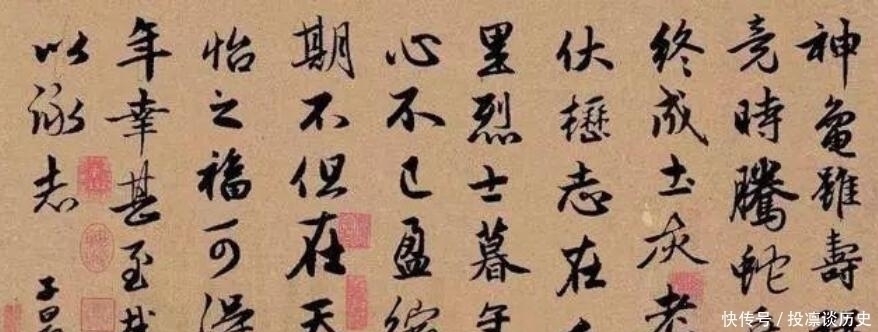 神龜雖壽
竟時騰蛇
終成土灰老
伏櫪志在
里烈士暮年
心不已盈縮
期不但在天
怡之福可得
年幸甚至哉
以詠志
子昂
快传号/投凛谈历史